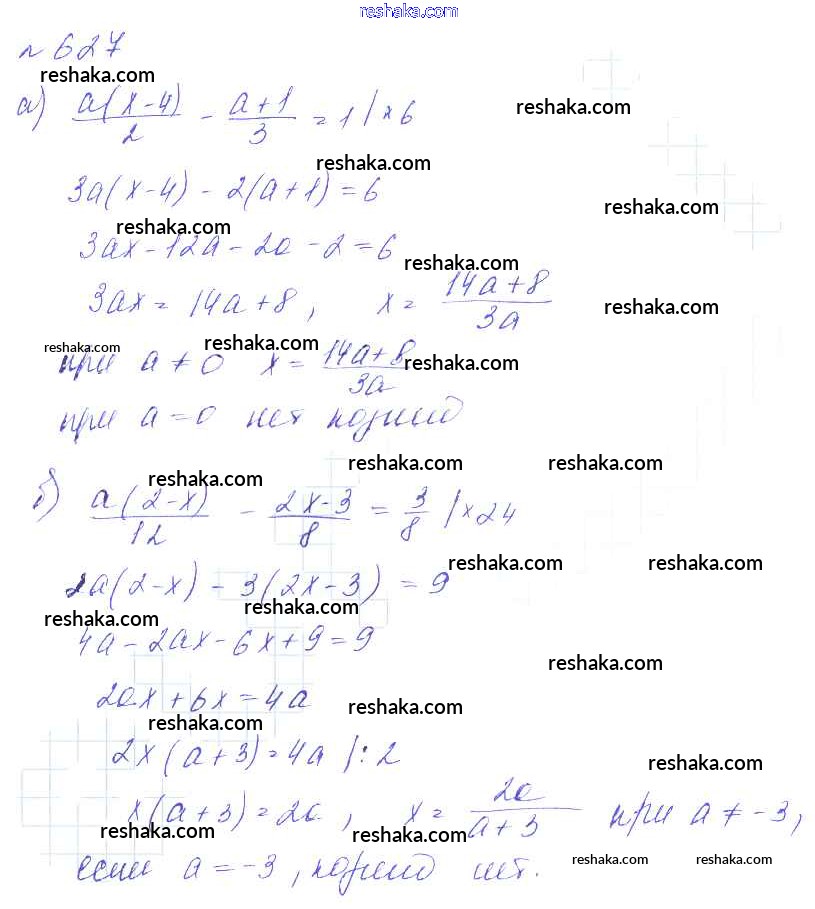 reshaka.com
№ 627
reshaka.com
а) a(x-4)/2 - (a+1)/3 = 1 | ×6
reshaka.com
reshaka.com
3a(x-4) - 2(a+1) = 6
reshaka.com
reshaka.com
3ax - 12a - 2a - 2 = 6
reshaka.com
3ax = 14a + 8, x = (14a+8)/3a
reshaka.com
reshaka.com
reshaka.com
при a ≠ 0 x = (14a+8)/3a
reshaka.com
при a = 0 нет корней
reshaka.com
reshaka.com
reshaka.com
б) a(2-x)/12 - (2x-3)/8 = 3/8 | ×24
reshaka.com
reshaka.com
2a(2-x) - 3(2x-3) = 9
reshaka.com
reshaka.com
4a - 2ax - 6x + 9 = 9
reshaka.com
2ax + 6x = 4a
reshaka.com
reshaka.com
2x(a+3) = 4a |: 2
reshaka.com
x(a+3) = 2a, x = 2a/(a+3) при a ≠ -3,
reshaka.com
reshaka.com
если a = -3, корней нет.
reshaka.com
reshaka.com